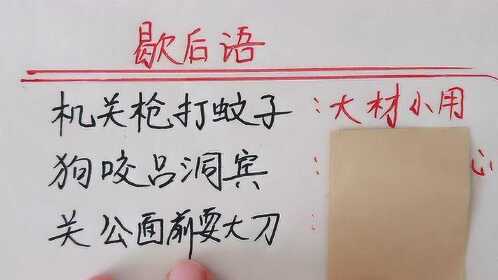 歇后语
机关枪打蚊子：大材小用
狗咬吕洞宾：
关公面前耍大刀：